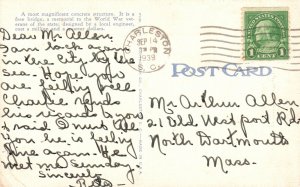 A most magnificent concrete structure. It is a
free bridge, a memorial to the World War vet-
erans of the state; designed by a local engineer,
cost a million and a quarter dollars.
CHARLESTON
SEP 14
PM
1939
S.C.
1 CENT 1
POST CARD
Dear Mr. Allen,
Am back again
in the city by the
sea. Hope you
are feeling fine
Charlie sends
his regards to you
and said I must tell
you he is feeling
fine again. He
met me Sunday.
Sincerely
Mr. Arthur Allen
21 Old Westport Rd
North Dartmouth
Mass.